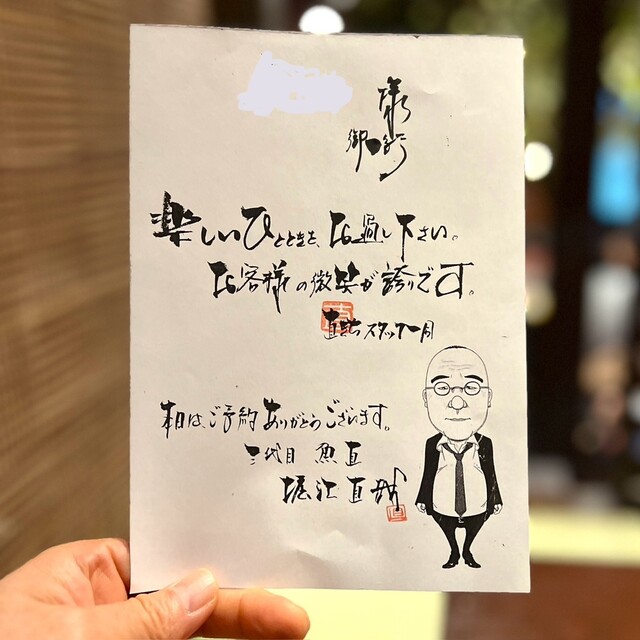 様
御一行
楽しいひとときを、お過し下さい。
お客様の微笑が誇りです。
スタッフ一同
本日は、ご予約ありがとうございます。
三代目 魚直
堀江直哉